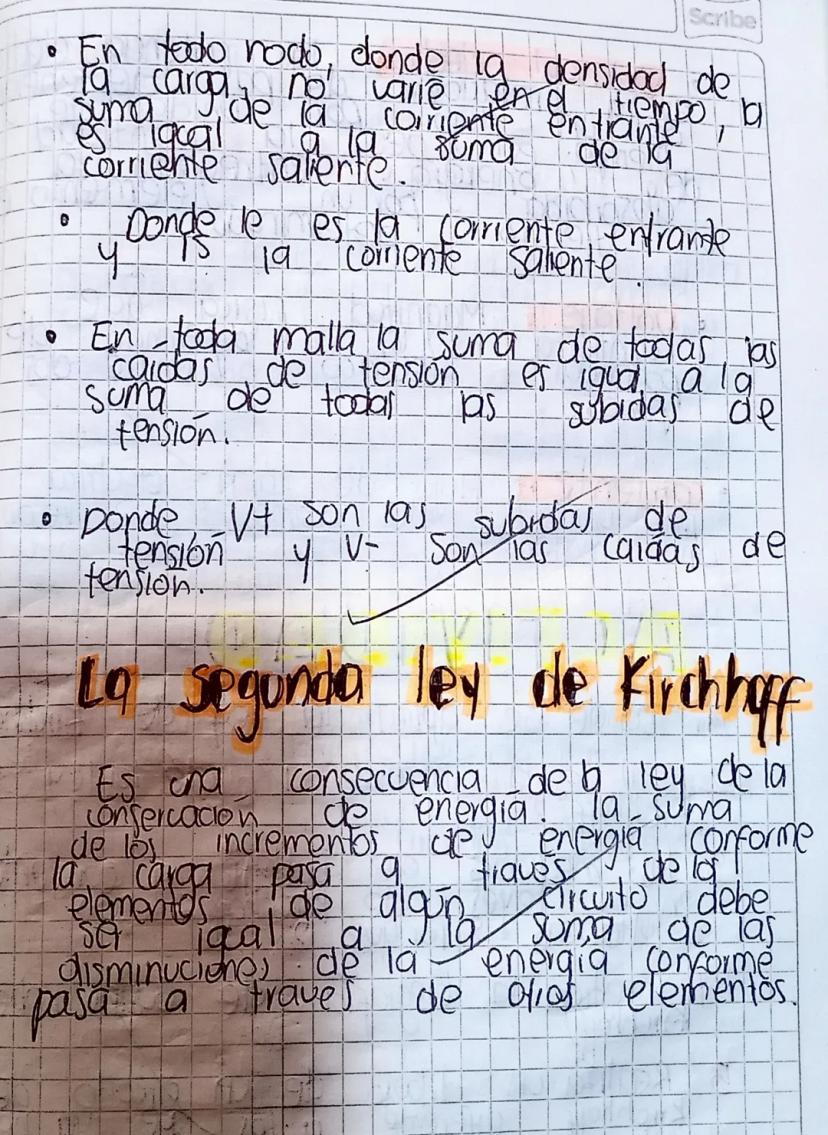 Scribe
• En todo nodo, donde la densidad de
la carga no varie en el tiempo, la
suma de la corriente entrante,
es igual a la suma de la
corriente saliente.
• Donde Ie es la corriente entrante
y Is la corriente saliente.
• En toda malla la suma de todas las
caidas de tensión es igual a la
suma de todas las subidas de
tensión.
• Donde V+ son las subidas de
tensión y V- Son las caidas de
tensión.
La segunda ley de Kirchhoff
Es una consecuencia de la ley de la
consercación de energia. la suma
de los incrementos de energia conforme
la carga pasa a traves de los
elementos de algún circuito debe
ser igual a la suma de las
disminuciones de la energia conforme
pasa a traves de otros elementos.